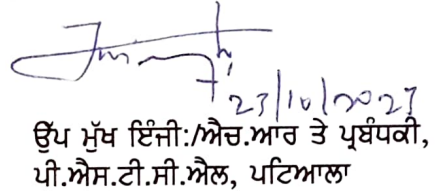 23/10/2023
ਉੱਪ ਮੁੱਖ ਇੰਜੀ:/ਐਚ.ਆਰ ਤੇ ਪ੍ਰਬੰਧਕੀ,
ਪੀ.ਐਸ.ਟੀ.ਸੀ.ਐਲ, ਪਟਿਆਲਾ